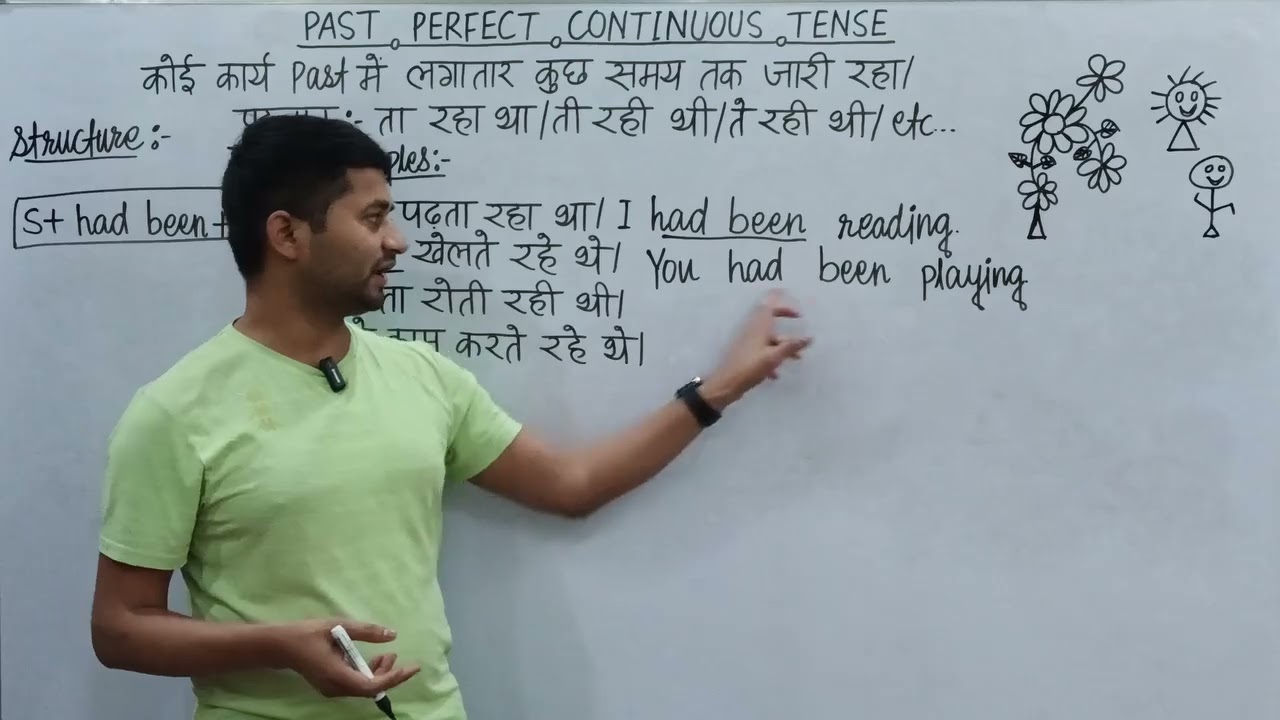 PAST PERFECT CONTINUOUS TENSE
कोई कार्य Past में लगातार कुछ समय तक जारी रहा।
ता रहा था/ती रही थी/ते रही थी/ etc...
Structure:-
ples:-
S+ had been+
पढ़ता रहा था। I had been reading.
खेलते रहे थे। You had been playing
रोती रही थी।
काम करते रहे थे।